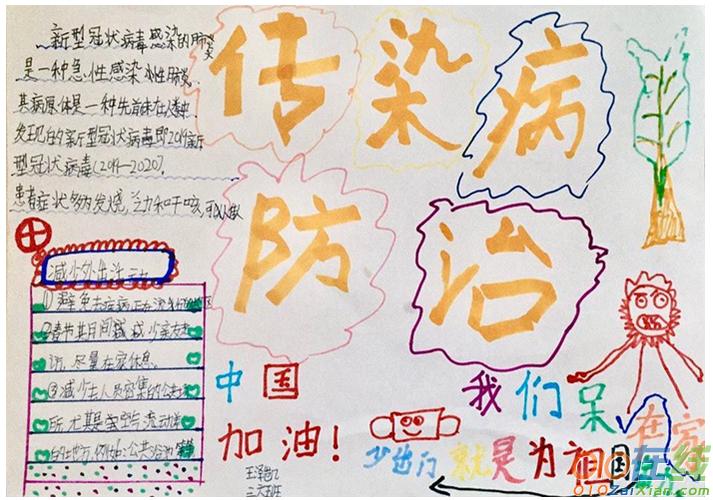 新型冠状病毒感染的肺炎
是一种急性感染性肺炎
其病原体是一种先前未在人类中
发现的新型冠状病毒即2019新
型冠状病毒(2019-2020).
患者症状多为发烧,乏力和干咳,
传染病
防治
减少外出活动
①避免去疾病正在流行的地区
②春节其月间减减少亲友走
访,尽量在家休息.
③减少去人员密集的公共场
所尤其是空气流动
的地方例如:公共
中国
加油!
少出门
我们呆在家
就是为祖国
王泽
010zaixian.com